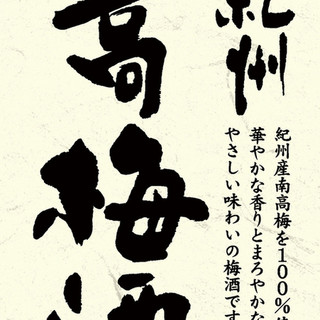 紀州
高梅酒
紀州産南高梅を100%使
華やかな香りとまろやかな
やさしい味わいの梅酒です